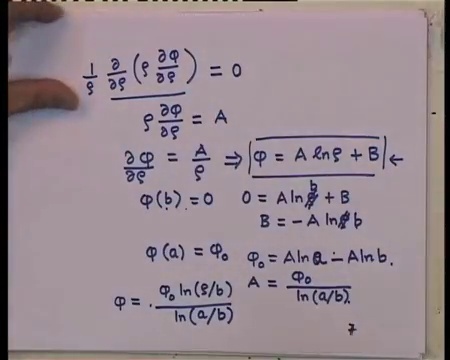 1/ρ ∂/∂ρ (ρ ∂φ/∂ρ) = 0
ρ ∂φ/∂ρ = A
∂φ/∂ρ = A/ρ ⇒ φ = A ln ρ + B ←
φ(b) = 0   0 = A ln b + B
B = - A ln b
φ(a) = φ₀   φ₀ = A ln a - A ln b.
A = φ₀ / ln(a/b).
φ = φ₀ ln(ρ/b) / ln(a/b)
7